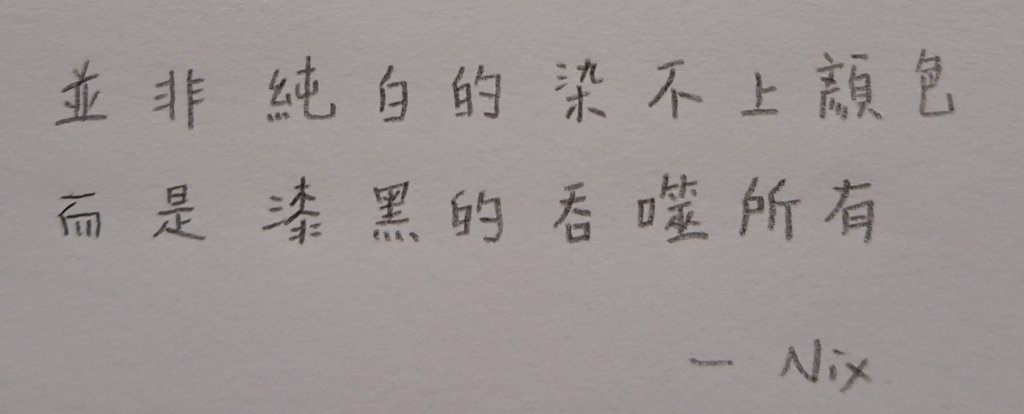 並非純白的染不上顏色
而是漆黑的吞噬所有
— Nix